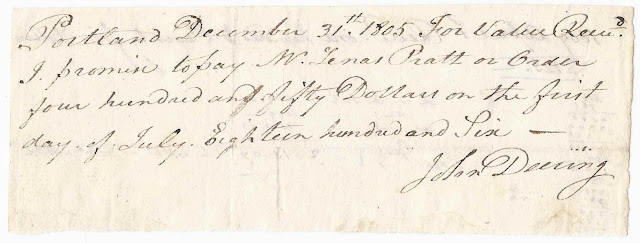 Portland December 31st. 1805 For Value Recd.
I. promise to pay Mr. Zenas Pratt or Order
four hundred and fifty Dollars on the first
day of July. Eighteen hundred and Six —
John Deering